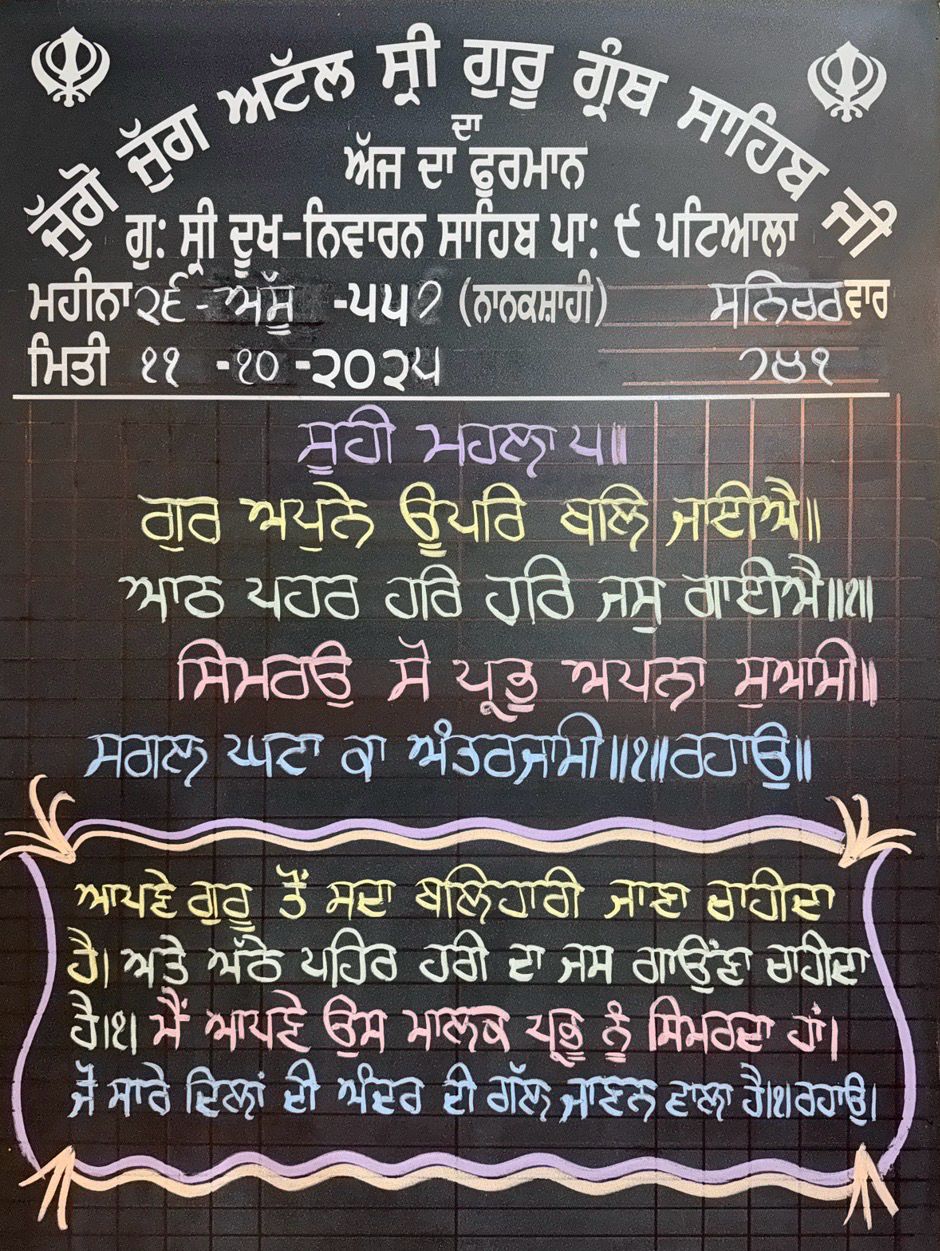 ਜੁੱਗੋ ਜੁੱਗ ਅਟੱਲ ਸ੍ਰੀ ਗੁਰੂ ਗ੍ਰੰਥ ਸਾਹਿਬ ਜੀ
ਦਾ
ਅੱਜ ਦਾ ਫੂਰਮਾਨ
ਗੁ: ਸ੍ਰੀ ਦੂਖ-ਨਿਵਾਰਨ ਸਾਹਿਬ ਪਾ: ੯ ਪਟਿਆਲਾ
ਮਹੀਨਾ ੨੬ - ਅੱਸੂ -੫੫੭ (ਨਾਨਕਸ਼ਾਹੀ) ਸਨਿਚਰਵਾਰ
ਮਿਤੀ ੧੧ -੧੦ -੨੦੨੫ ੭੪੧
ਸੂਹੀ ਮਹਲਾ ੫॥
ਗੁਰ ਅਪੁਨੇ ਊਪਰਿ ਬਲਿ ਜਾਈਐ॥
ਆਠ ਪਹਰ ਹਰਿ ਹਰਿ ਜਸੁ ਗਾਈਐ॥੧॥
ਸਿਮਰਉ ਸੋ ਪ੍ਰਭੁ ਅਪਨਾ ਸੁਆਮੀ॥
ਸਗਲ ਘਟਾ ਕਾ ਅੰਤਰਜਾਮੀ॥੧॥ਰਹਾਉ॥
ਆਪਣੇ ਗੁਰੂ ਤੋਂ ਸਦਾ ਬਲਿਹਾਰੀ ਜਾਣਾ ਚਾਹੀਦਾ
ਹੈ। ਅਤੇ ਅੱਠੇ ਪਹਿਰ ਹਰੀ ਦਾ ਜਸ ਗਾਉਂਣਾ ਚਾਹੀਦਾ
ਹੈ।੧। ਮੈਂ ਆਪਣੇ ਉਸ ਮਾਲਕ ਪ੍ਰਭੂ ਨੂੰ ਸਿਮਰਦਾ ਹਾਂ।
ਜੋ ਸਾਰੇ ਦਿਲਾਂ ਦੀ ਅੰਦਰ ਦੀ ਗੱਲ ਜਾਣਨ ਵਾਲਾ ਹੈ।੧।ਰਹਾਉ।